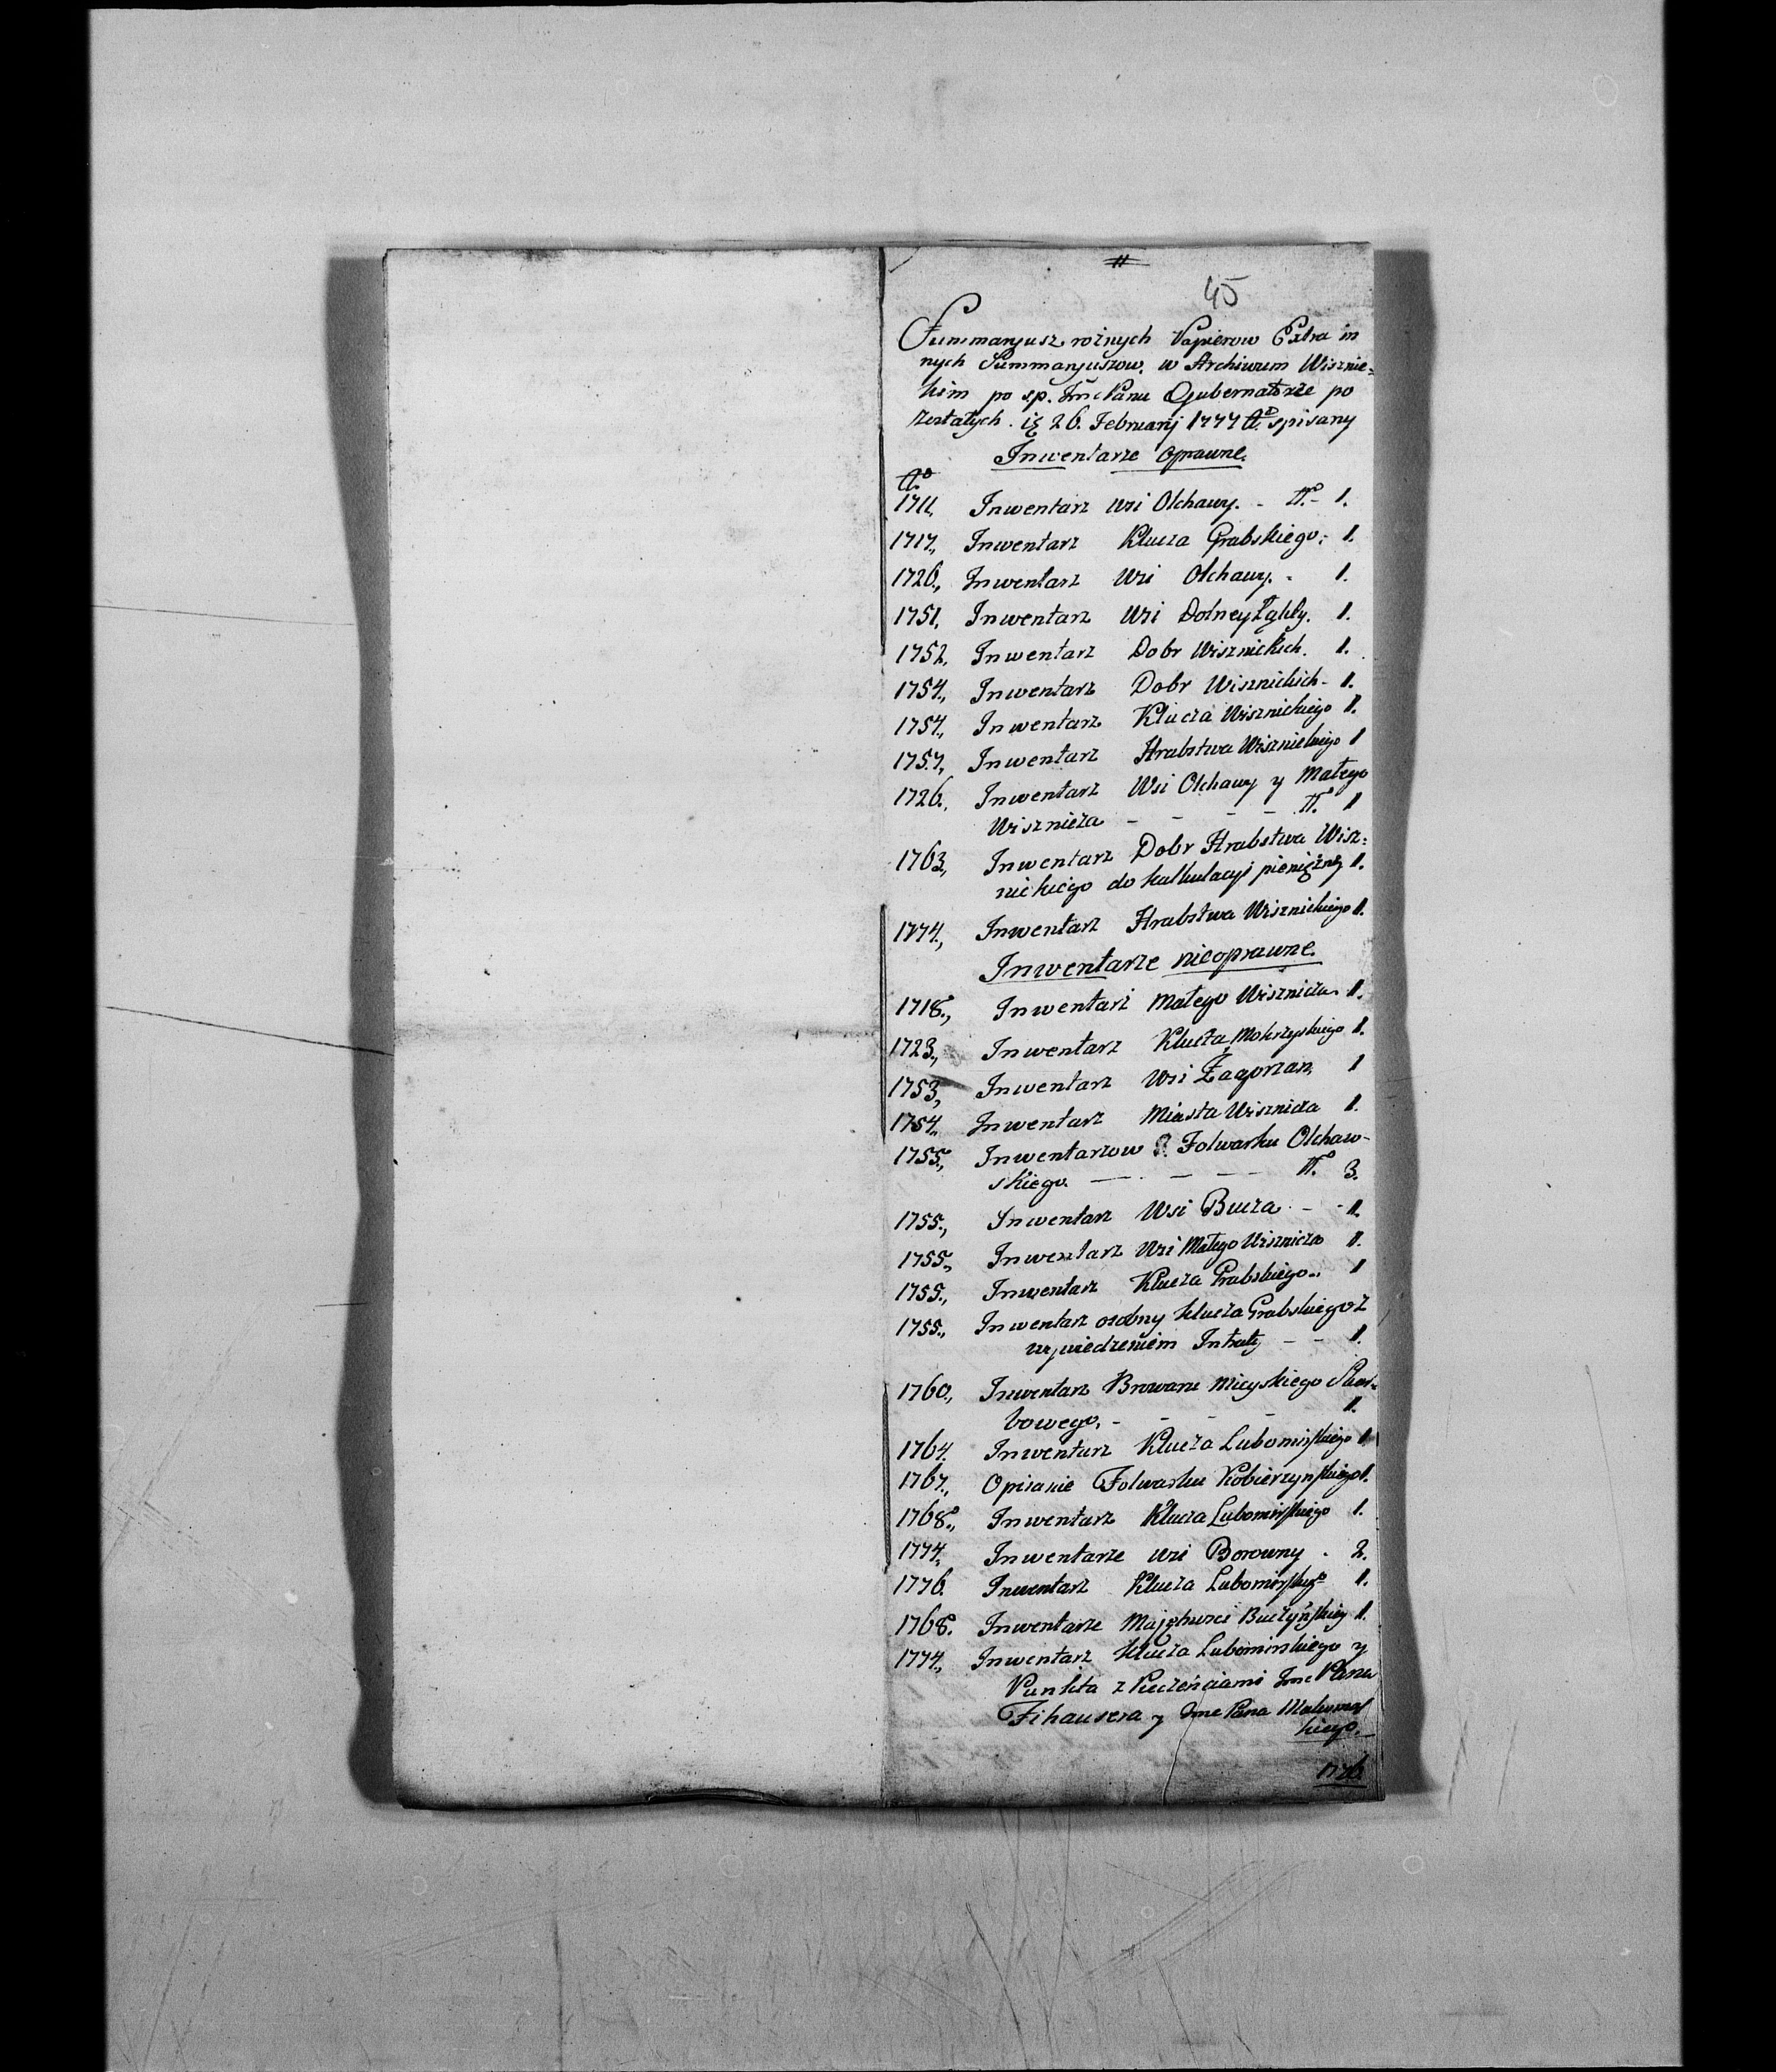 45
Summaryusz rożnych Papierow Extra in
nych Summaryuszow, w Archiwum Wisznic=
kim po s.p. Jmc Panu Gubernatorze po
zostałych. 26. Februarij 1777 Ao spisany
Inwentarze Oprawne.
Ao
1711, Inwentarz Wsi Olchawy. - No - 1.
1717., Inwentarz Klucza Grabskiego: 1.
1726., Inwentarz Wsi Olchawy. - 1.
1751, Inwentarz Wsi Dolney Łąkty. 1.
1752, Inwentarz Dobr Wisznickich. 1.
1754., Inwentarz Dobr Wisznickich - 1.
1754., Inwentarz Klucza Wisznickiego 1.
1757., Inwentarz Hrabstwa Wisznickiego 1
1726., Inwentarz Wsi Olchawy y Małego
Wisznicza - - - - No 1
1763., Inwentarz Dobr Hrabstwa Wisz=
nickiego do kalkulacyi pieniężney 1.
1774., Inwentarz Hrabstwa Wisznickiego 1.
Inwentarze nieoprawne.
1718., Inwentarz Małego Wisznicza. 1.
1723., Inwentarz Klucza Mokrzyskiego 1.
1753., Inwentarz Wsi Zagorzan, 1
1754., Inwentarz Miasta Wisznicza 1.
1755., Inwentarzow 3. Folwarku Olchaw-
skiego. - - - - No 3.
1755., Inwentarz Wsi Bucza - - 1.
1755., Inwentarz Wsi Małego Wisznicza 1.
1755., Inwentarz Klucza Grabskiego.. 1
1755., Inwentarz osobny Klucza Grabskiego z
wywiedzeniem Intraty - - 1.
1760., Inwentarz Browaru Mieyskiego Skar=
bowego. - - - - 1.
1764. Inwentarz Klucza Lubomirskiego 1
1767., Opisanie Folwarku Kobierzynskiego 1.
1768., Inwentarz Klucza Lubomirskiego 1.
1774., Inwentarze Wsi Borowny . 2.
1776. Inwentarz Klucza Lubomirskiego 1.
1768. Inwentarze Majętnosci Buczyńskiey 1.
1774., Inwentarz Klucza Lubomirskiego y
Punkta z Pieczęńciami Jmc Pana
Fihausera y Jmc Pana
kiego.
1776.